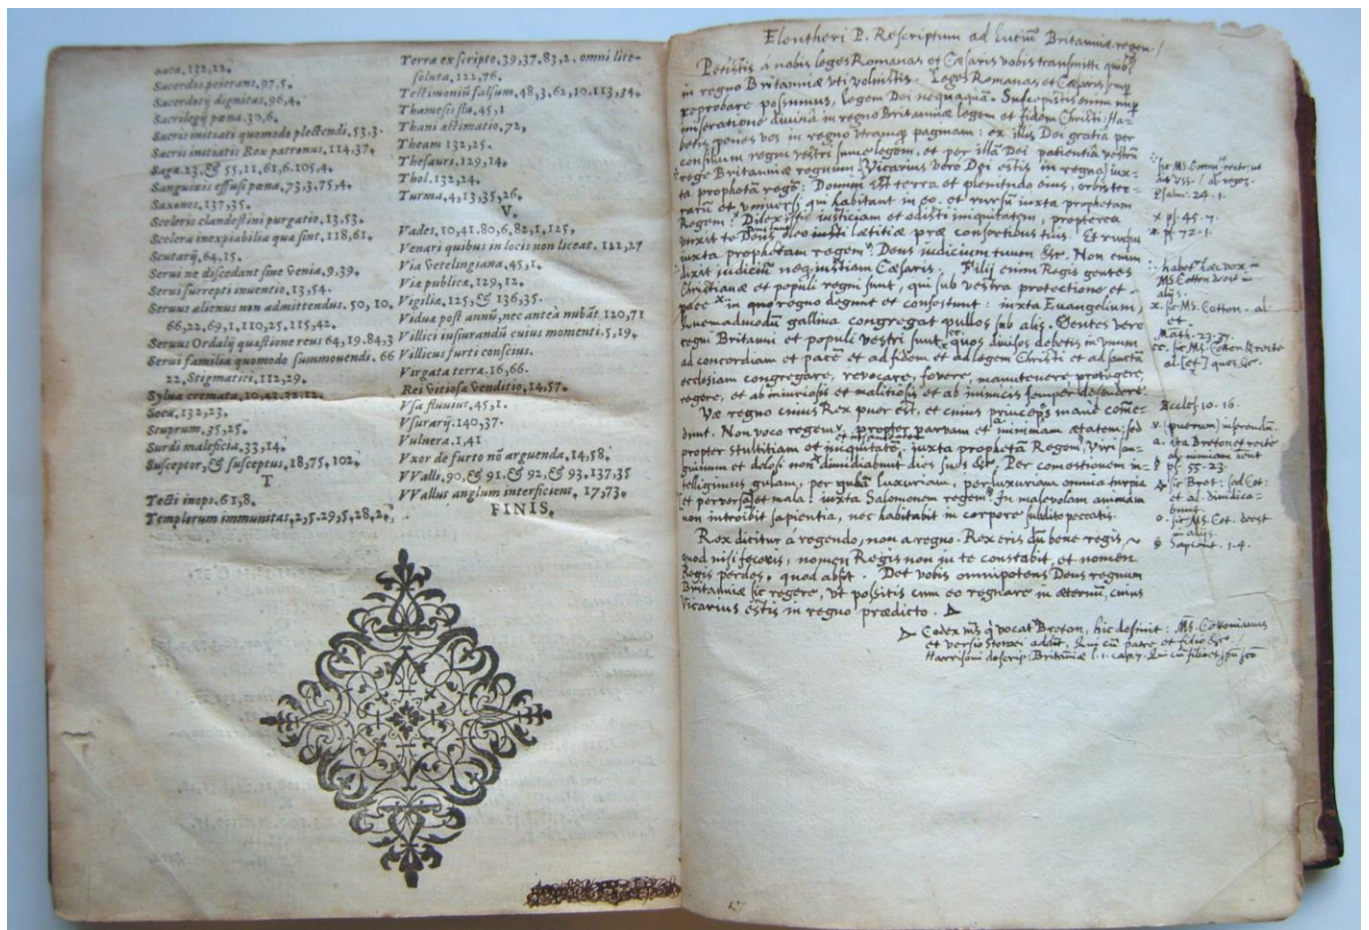 Saca, 132, 22.
Sacerdos peierans, 97, 5.
Sacerdotij dignitas, 96, 4.
Sacrilegij pœna, 30, 6.
Sacris initiati quomodo plectendi, 53, 3.
Sacris initiatis Rex patronus, 114, 37.
Saga. 23, & 55, 11, 61, 6. 105, 4.
Sanguinis effusi pœna, 73, 3, 75, 4.
Saxones, 137, 35.
Sceleris clandestini purgatio, 13, 53.
Scelera inexpiabilia quæ sint, 118, 61.
Scutarij, 64, 15.
Serui ne discedant sine venia, 9, 39.
Serui surrepti inuentio, 13, 54.
Seruus alienus non admittendus. 50, 10.
66, 22, 69, 1, 110, 25. 115, 42.
Seruus Ordalij quæstione reus 64, 19. 84, 3
Serui familia quomodo summouendi. 66
22. Stigmatici, 112, 29.
Sylua cremata, 10, 43, 32, 12.
Soca, 132, 23.
Stuprum. 35, 25.
Surdi maleficia, 33, 14.
Susceptor, & susceptus, 18, 75. 102.
T
Tecti inops. 61, 8.
Templorum immunitas, 2, 5. 29, 5, 28, 2,
Terra ex scripto, 39, 37, 83, 2. omni lite-
soluta, 122, 76.
Testimoniũ falsum, 48, 3, 62, 10. 113, 34.
Thamesis flu, 45, 1
Thani æstimatio, 72,
Theam 132, 25.
Thesauri, 129, 14.
Thol, 132, 24.
Turma, 4, 13, 35, 26.
V.
Vades, 10, 41, 80, 6, 82, 1, 125,
Venari quibus in locis non liceat. 122, 27
Via Vetelingiana, 45, 1.
Via publica, 129, 12.
Vigilia, 125, & 136, 35.
Vidua post annũ, nec anteà nubãt 120, 71
Villici iusiurandũ cuius momenti. 5, 19.
Villicus furti conscius.
Virgata terræ, 16, 66.
Rei vitiosæ venditio, 14, 57.
Vsa fluuius, 45, 1.
Vsurarij, 140, 37.
Vulnera, 1, 41
Vxor de furto nõ arguenda, 14, 58.
VValli, 90, & 91. & 92, & 93. 137, 35
VVallus anglum interficiens, 17, 73.
FINIS.
Eleutheri P. Rescriptum ad Lucium Britanniæ regem
Petistis à nobis leges Romanas et Cæsaris vobis transmitti quibus
in regno Britanniæ vti voluistis. Leges Romanas et Cæsaris semper
reprobare possumus, legem Dei nequaquam. Suscepistis enim nuper
miseratione divinâ in regno Britanniæ legem et fidem Christi: Ha-
betis penes vos in regno vtramque paginam: ex illis Dei gratia per
consilium regni vestri sume legem, et per illã Dei patientiâ vestrũ
rege Britanniæ regnum. Vicarius verò Dei estis in regno, jux-
ta prophetã regẽ: Domini est terra et plenitudo eius, orbis ter-
rarũ et vniversi qui habitant in eo. et rursũ juxta prophetam
Regem: Dilexistis justiciam et odisti iniquitatem, propterea
vnxit te Deus oleo lætitiæ præ consortibus tuis. Et rursus
juxta prophetam regem: Deus judicium tuum &c. Non enim
dixit judiciũ neque justitiam Cæsaris. Filij enim Regis gentes
Christianæ et populi regni sunt, qui sub vestra protectione et
pace in quo regno degunt et consistunt: juxta Evangelium,
Quemadmodũ gallina congregat pullos sub alis. Gentes vero
regni Britanni et populi vestri sunt quos divisos debetis in vnum
ad concordiam et pacẽ et ad fidem et ad legem Christi et ad sanctã
ecclesiam congregare, revocare, fovere, manutenere protegere,
regere, et ab iniuriosis et malitiosis et ab inimicis semper defendere
Væ regno cuius Rex puer est, et cuius principes mane come-
dunt. Non voco regem propter parvam et minimam ætatem; sed
propter stultitiam et iniquitatẽ, juxta prophetã Regem, Viri san-
guinum et dolosi non dimidiabunt dies suos &c. Per comestionem in-
telligimus gulam, per gulã luxuriam, per luxuriam omnia turpia
et perversa et mala: juxta Salomonem regem In malevolam animam
non introibit sapientia, nec habitabit in corpore subdito peccatis.
Rex dicitur a regendo, non a regno. Rex eris dũ bene regis,
quod nisi feceris, nomen Regis non in te constabit, et nomen
Regis perdes, quod absit. Det vobis omnipotens Deus regnum
Britanniæ sic regere, vt possitis cum eo regnare in æternũ, cuius
Vicarius estis in regno prædicto.
Codex ms q vocat Breton, hic desinit: Ms. Cottonianus
et versio Stowei addit, Qui cũ patre et filio &c.
Harrisoni descrip: Britanniæ l. 1. cap. 7.
Psalme. 24. 1.
x ps. 45. 7.
x. ps. 72. 1.
habet hæc vox
MS Cotton deest in
alijs.
x. sic Ms. Cotton. al
et
Math. 23. 37.
Eccles. 10. 16.
ps. 55. 23.
Sapient. 1. 4.